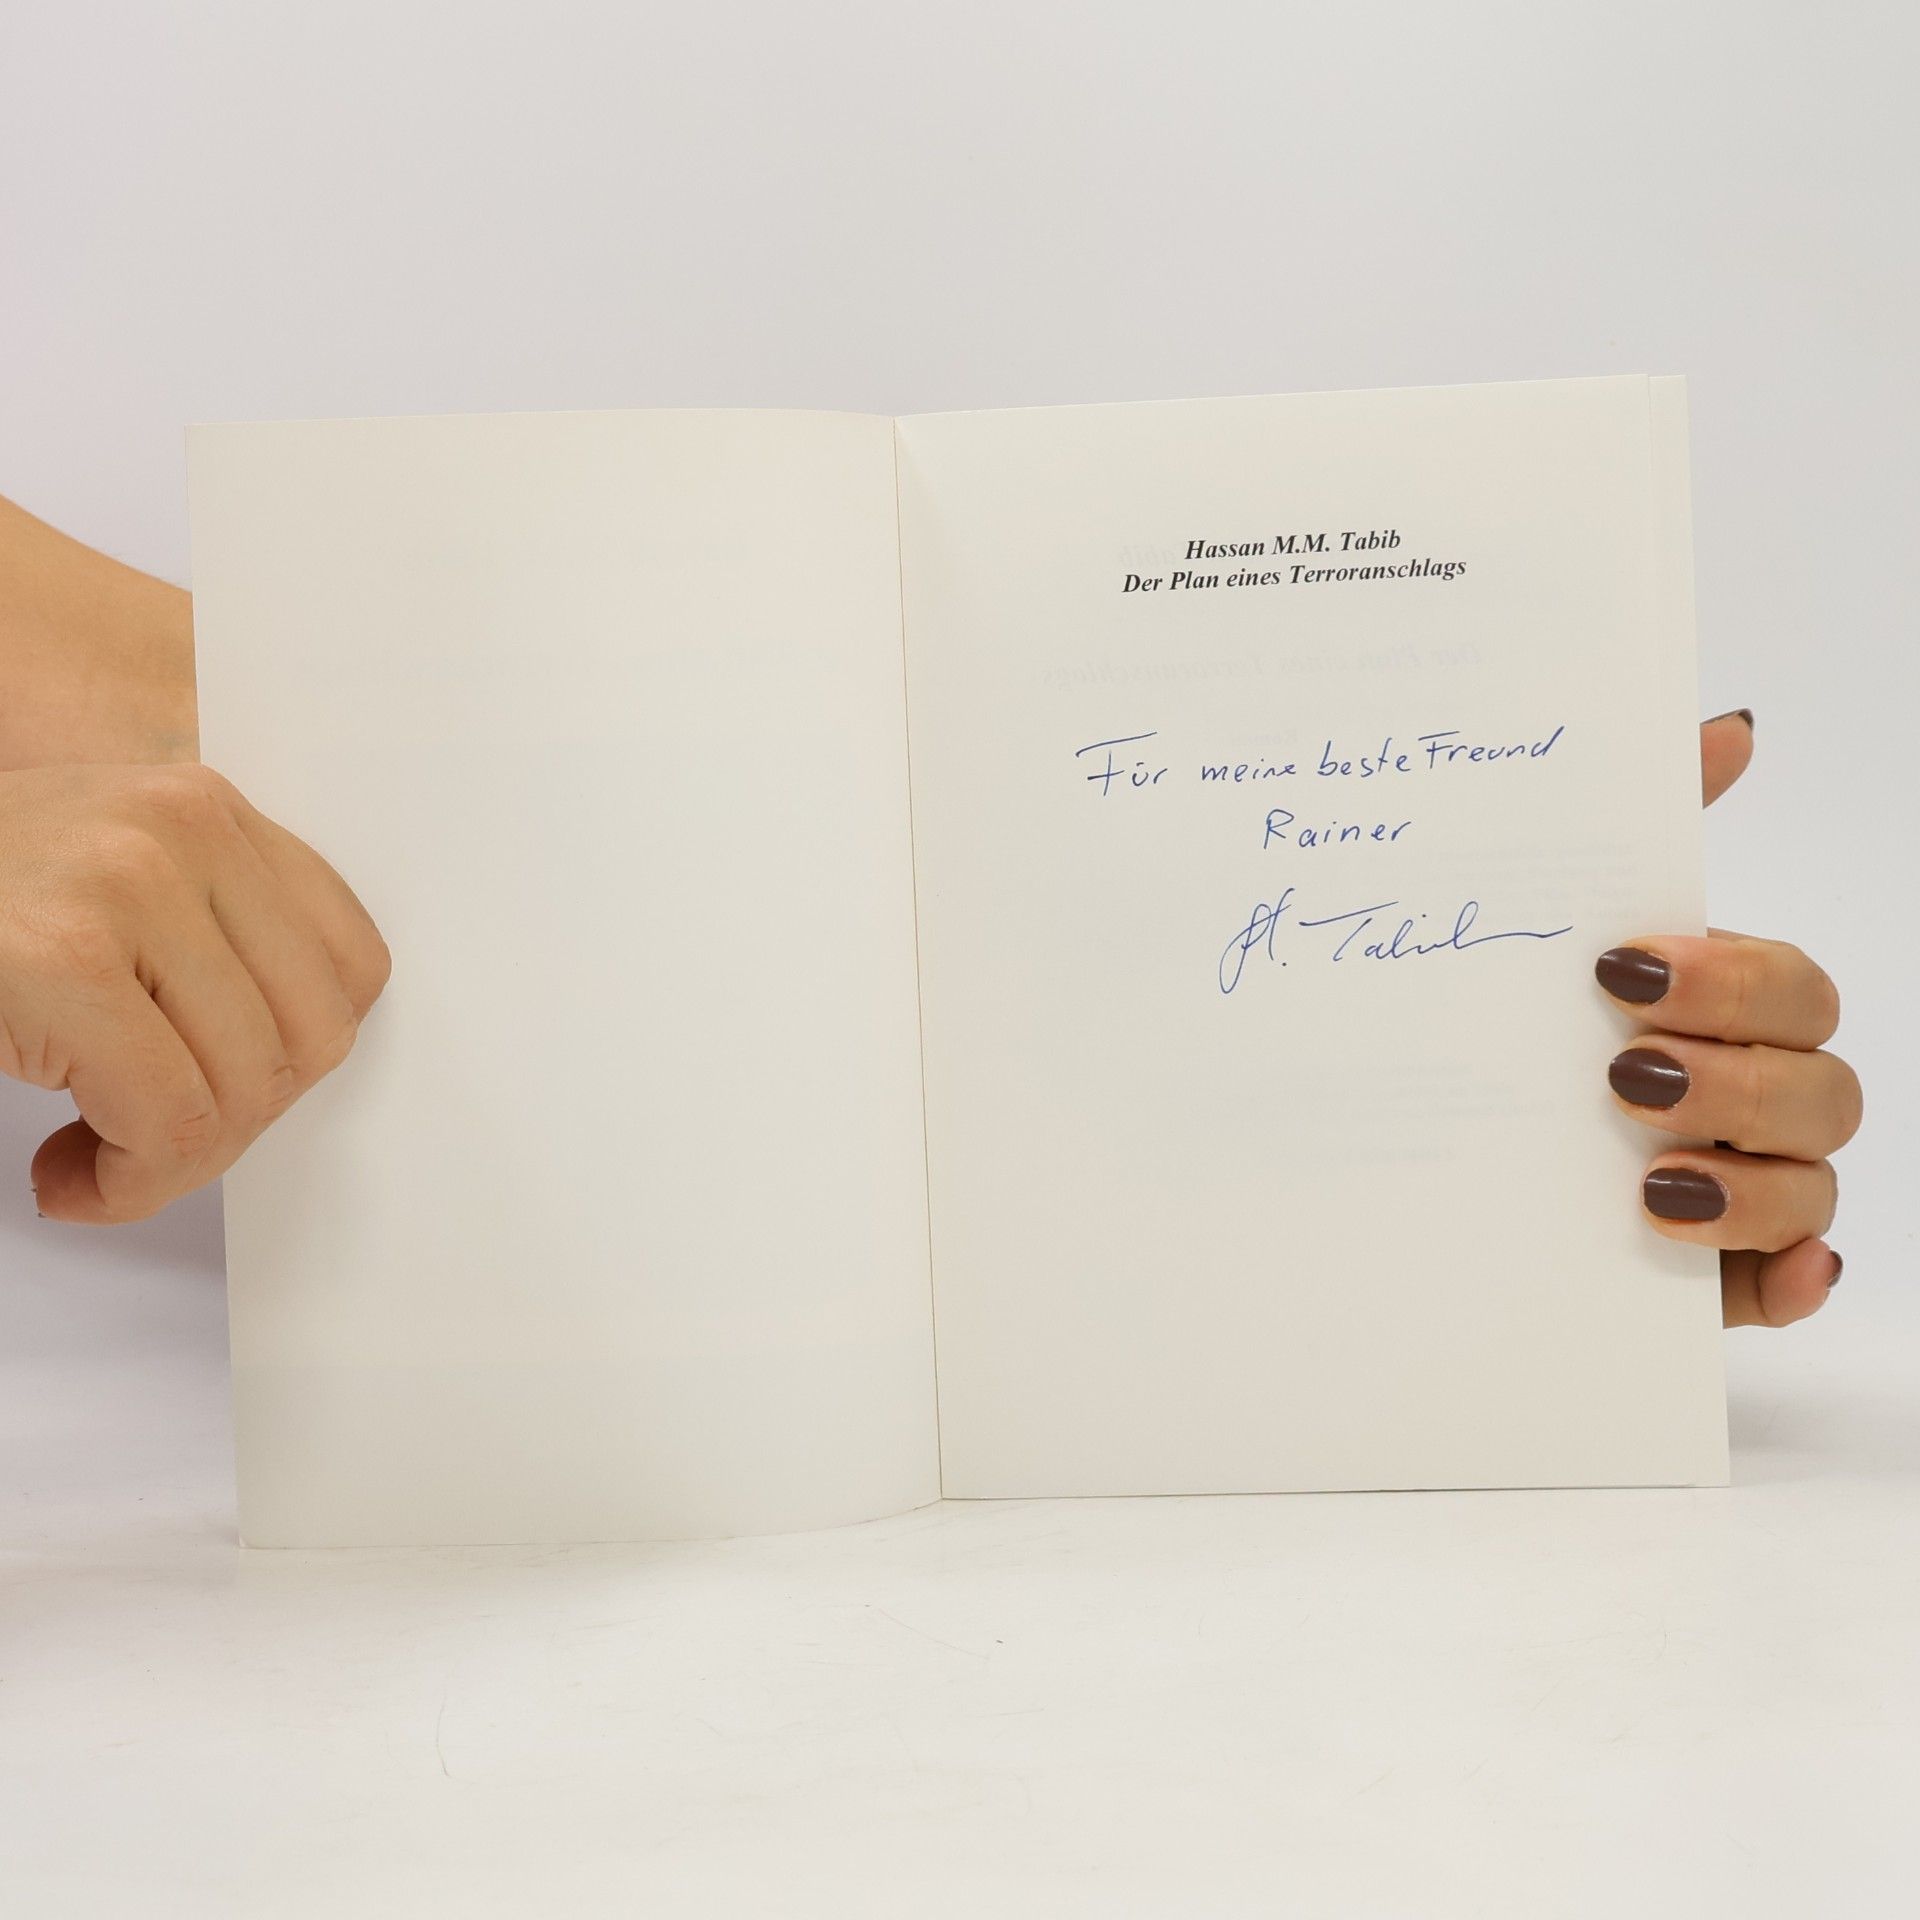 Hassan M.M. Tabib
Der Plan eines Terroranschlags
Für meine beste Freund
Rainer
H. Tabib